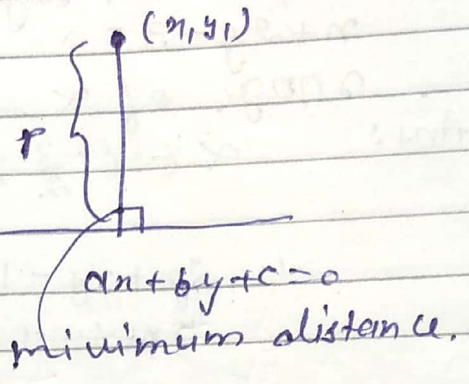 (x1, y1)
r
ax + by + c = 0
minimum distance.